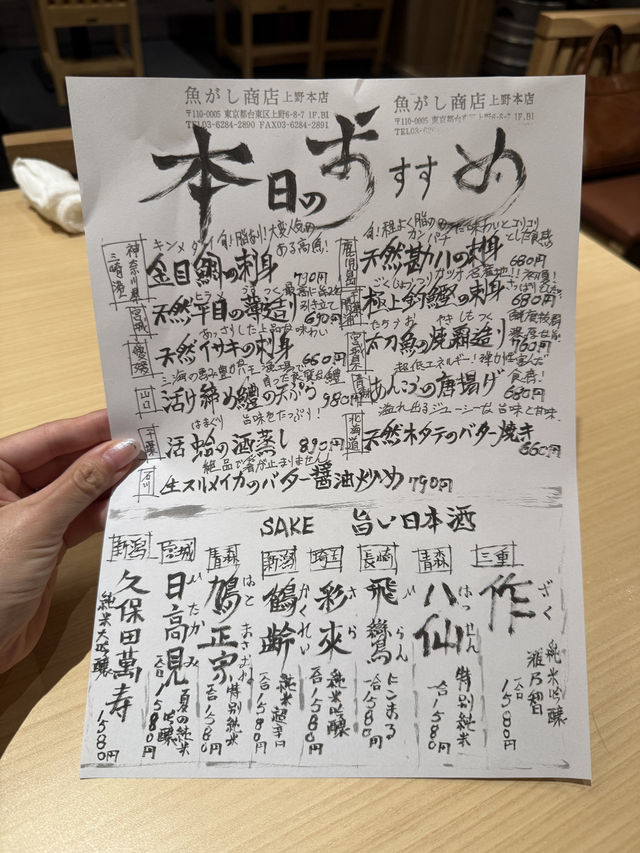 魚がし商店 上野本店
〒110-0005 東京都台東区上野6-8-7 1F.B1
TEL03-6284-2890 FAX03-6284-2891
魚がし商店 上野本店
〒110-0005 東京都台東区上野6-8-7 1F.B1
TEL03-62
本日のおすすめ
神奈川県
三崎港
キンメダイ
ある高魚!
金目鯛の刺身 790円
宮城
ヒラメ
引き立て
天然平目の薄造り 690円
愛媛
あっさりした上品な味わい
天然イサキの刺身 660円
山口
活け締め鱧の天ぷら 980円
千葉
はまぐり 旨味をたっぷり!
活 蛤の酒蒸し 890円
石川
絶品で箸が止まりません
生スルメイカのバター醤油炒め 790円
鹿児島
カンパチ
天然勘八の刺身 680円
極上 鰹の刺身 680円
宮城県
たちうお やきしもつくり
太刀魚の焼霜造り 760円
青森
超低エネルギー!弾力性富んだ
食感!
あんこうの唐揚げ 680円
北海道
溢れ出るジューシーな旨味と甘味。
天然ホタテのバター焼き 860円
SAKE 旨い日本酒
三重
作 ざく
純米吟醸
雅乃智
一合1580円
青森
八仙 はっせん
特別純米
一合1580円
長崎
飛鸞 ひらん
にこまる
一合1580円
埼玉
彩來 さら
純米吟醸
一合1580円
新潟
鶴齢 かくれい
純米超辛口
一合1580円
青森
鳩正宗 はとまさむね
特別純米
一合1580円
宮城
日高見 ひたかみ
夏の純米吟醸
一合1580円
新潟
久保田萬寿
純米大吟醸
1580円